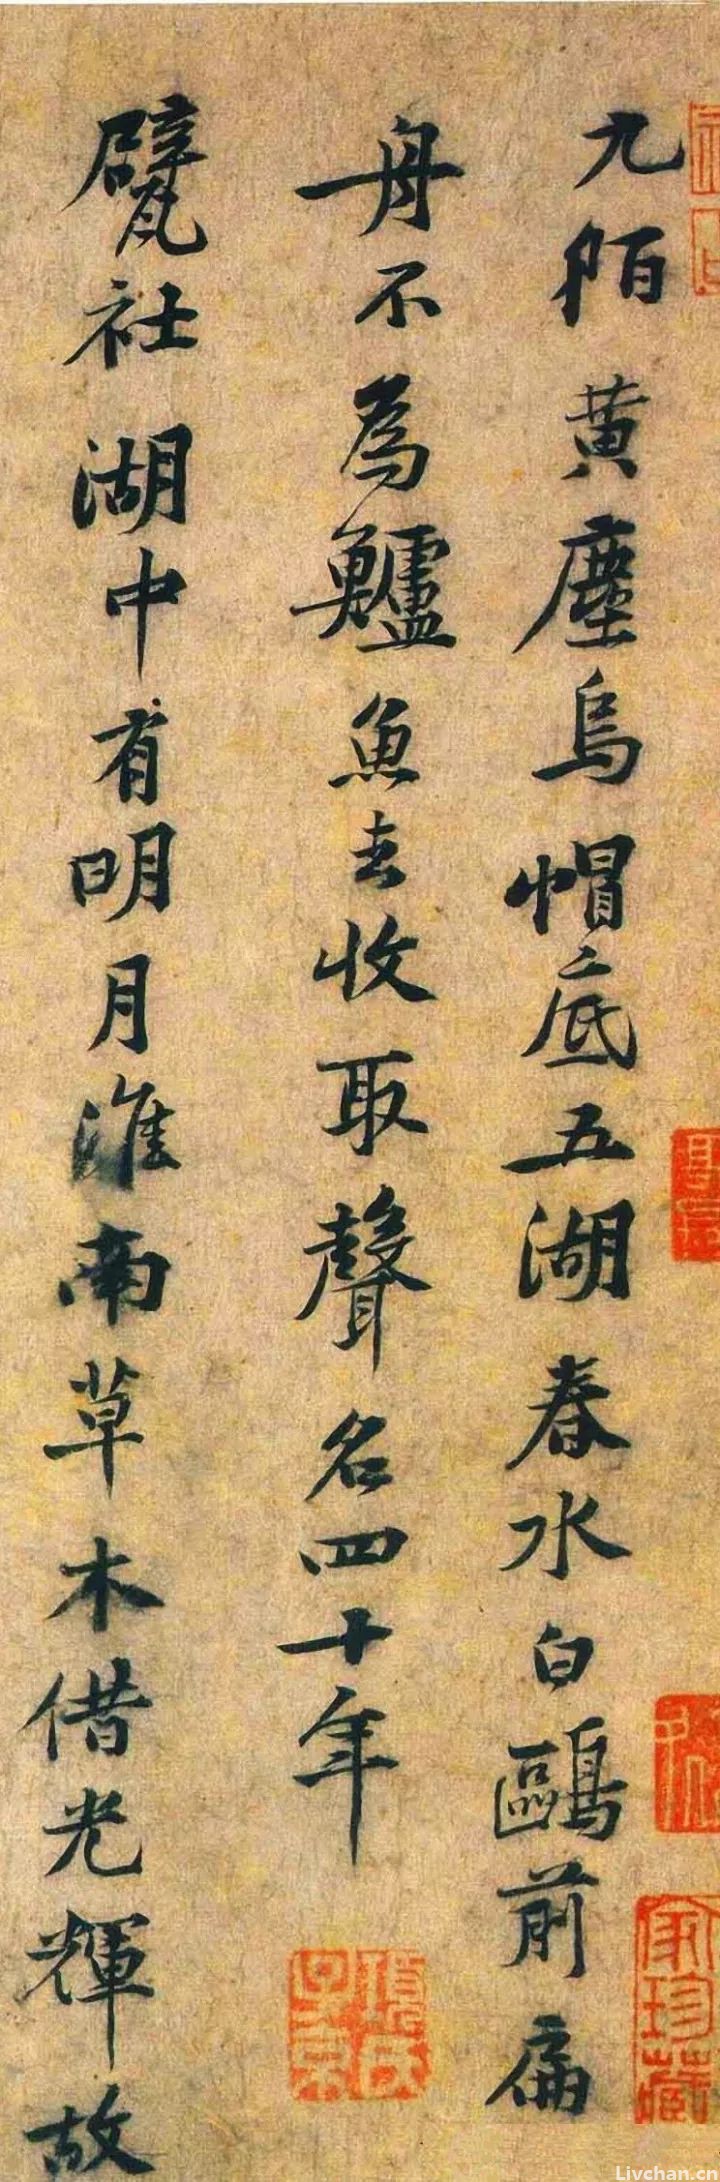 九陌黄塵烏帽底五湖春水白鷗前扁
舟不為鱸魚去收取聲名四十年
甓社湖中有明月淮南草木借光輝故
項氏子京
家珍藏
Livchan.cn